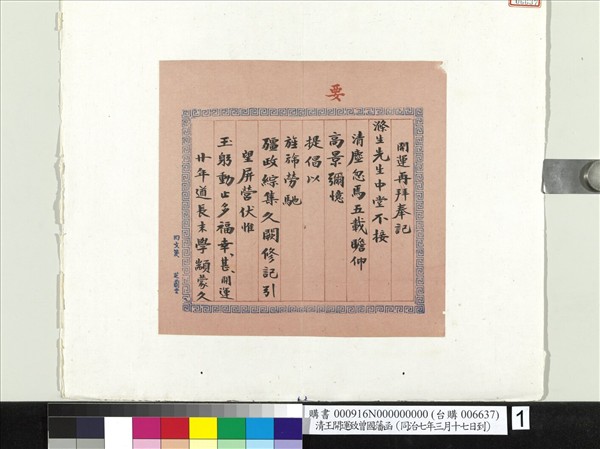 要
闓運再拜奉記
滌生先生中堂不接
清塵忽焉五載瞻仰
高景彌憶
提倡以
旌旆勞馳
疆政綜集久闕修記引
望屏營伏惟
玉躬動止多福幸甚幸甚闓運
廿年道長末學顓蒙久
購書 000916N000000000 (台購 006637)
清王闓運致曾國藩函 (同治七年三月十七日到)
1